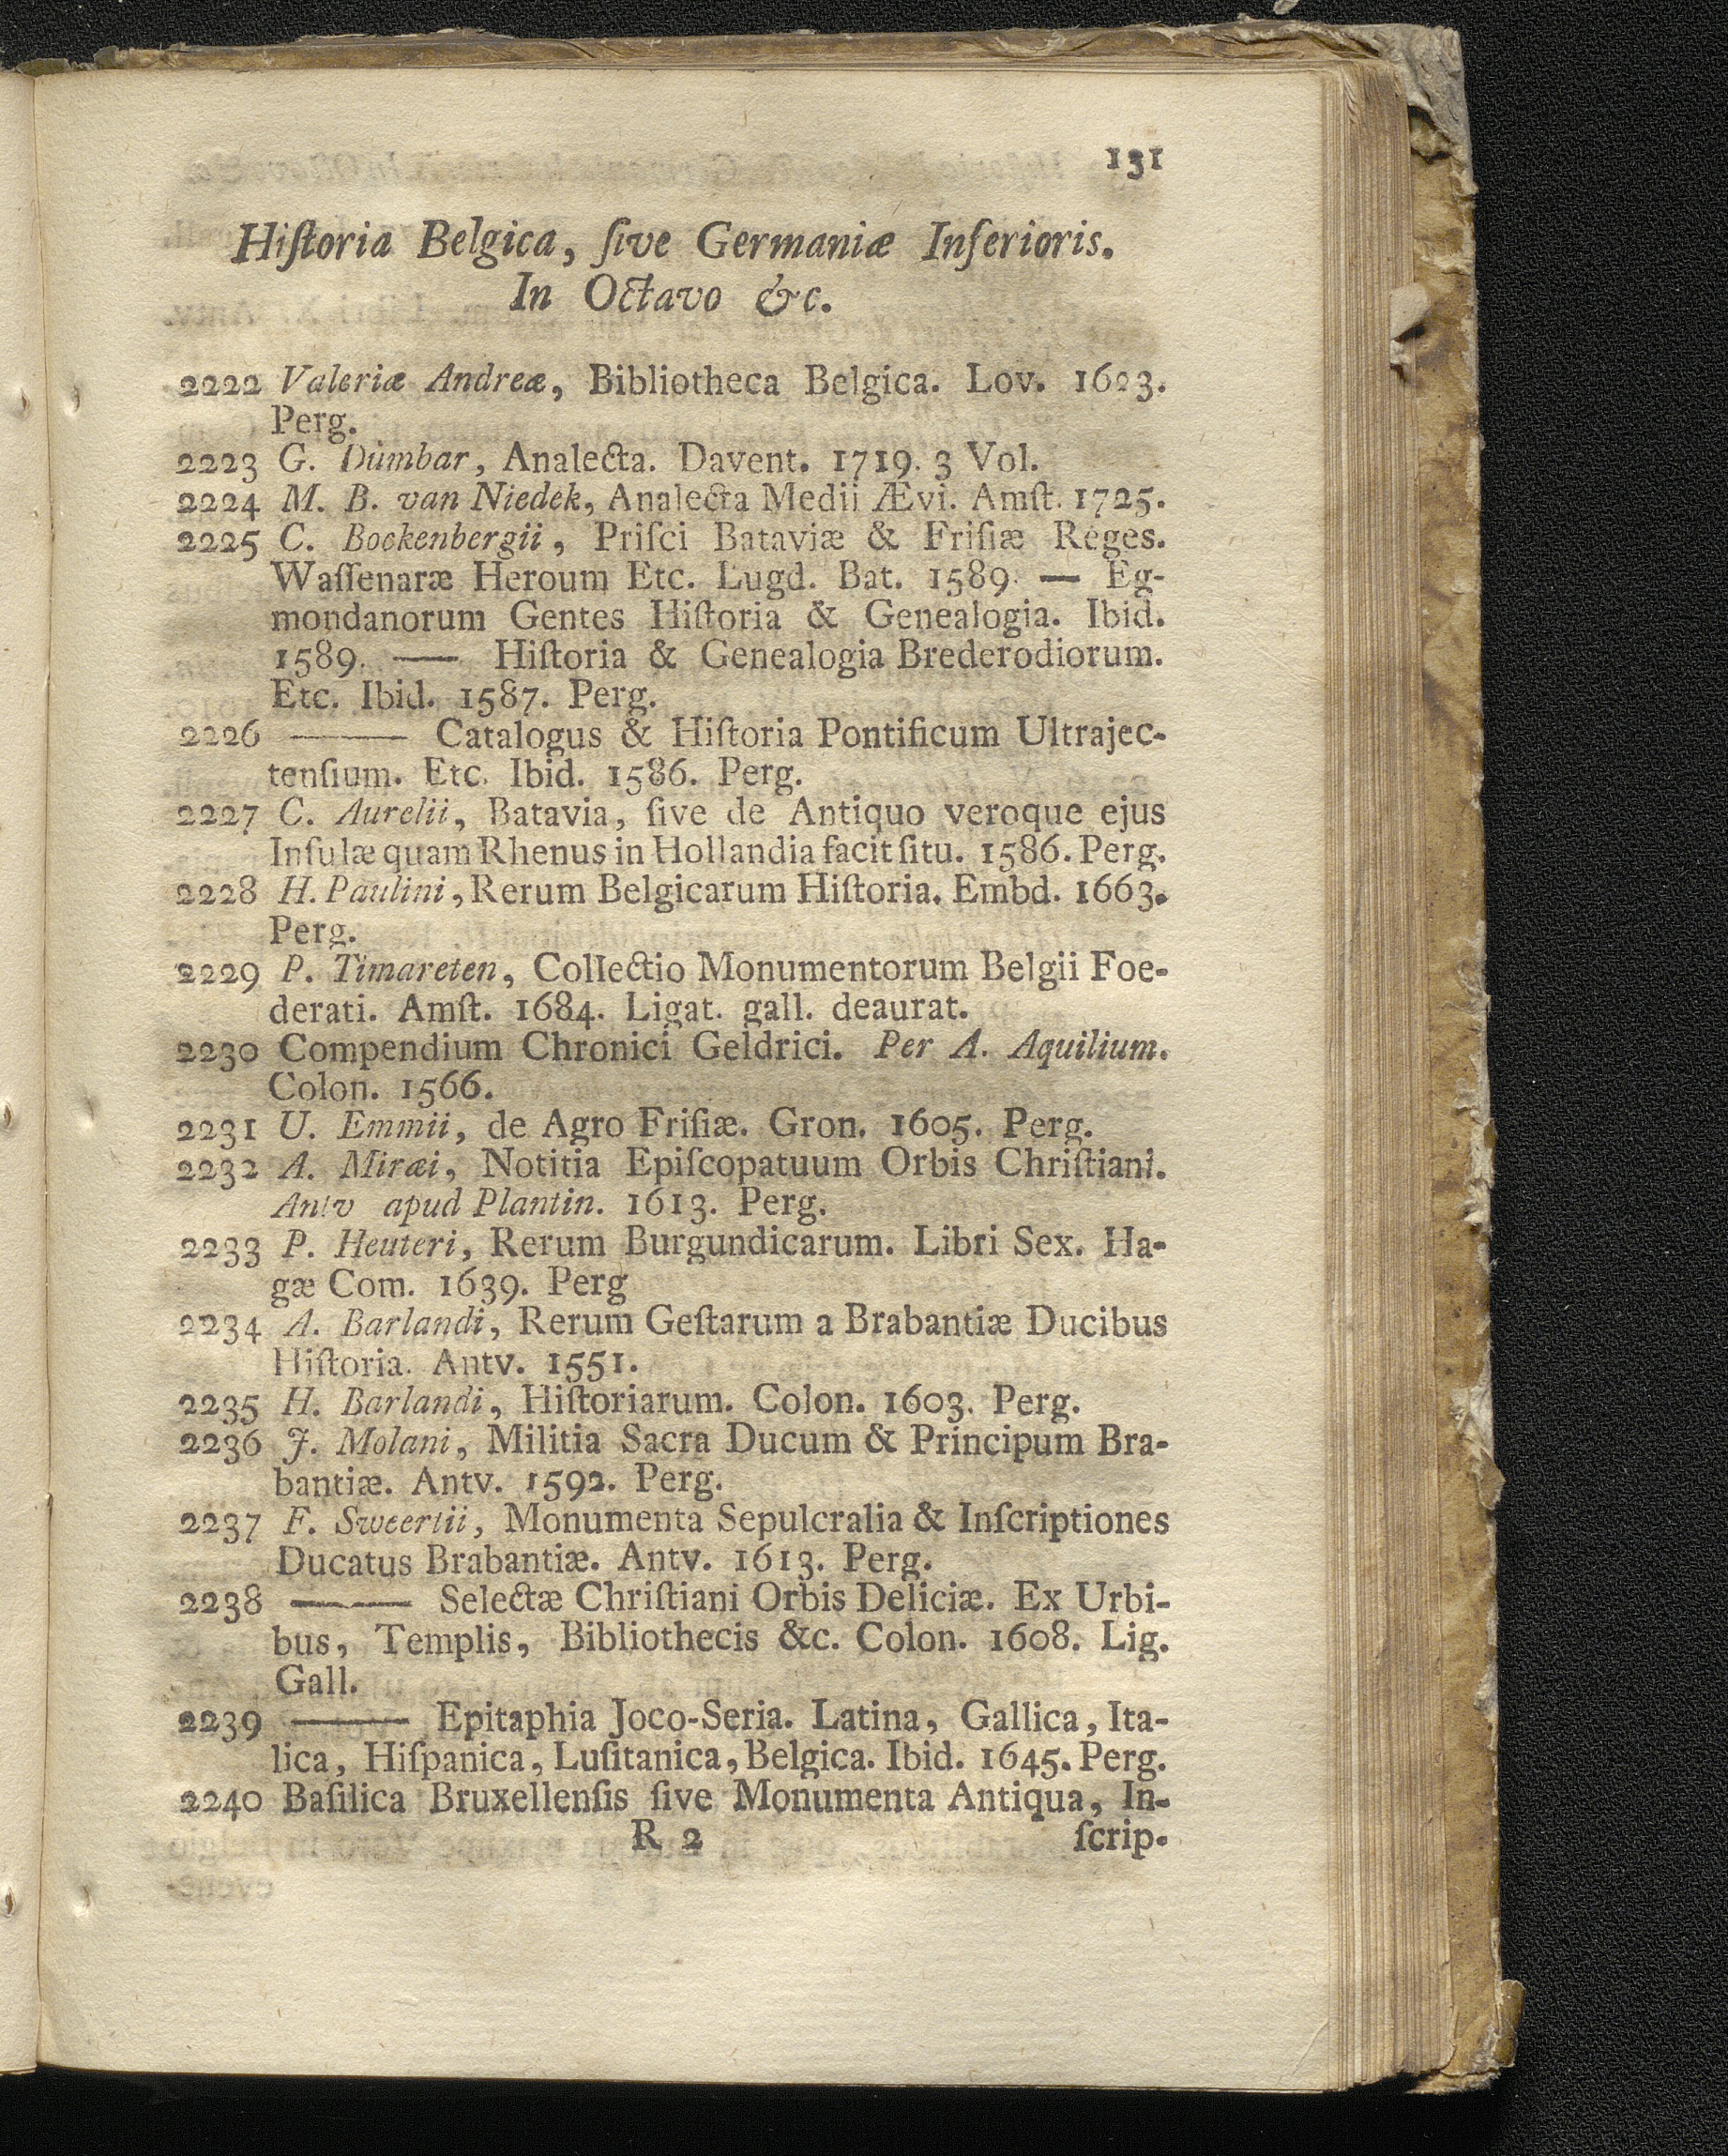 131
Hiſtoria Belgica, ſive Germaniæ Inferioris.
In Octavo &c.
2222 Valeriæ Andreæ, Bibliotheca Belgica. Lov. 1623.
Perg.
2223 G. Dumbar, Analecta. Davent. 1719. 3 Vol.
2224 M. B. van Niedek, Analecta Medii Ævi. Amſt. 1725.
2225 C. Bockenbergii, Priſci Bataviæ & Friſiæ Reges.
Waſſenaræ Heroum Etc. Lugd. Bat. 1589. — Eg-
mondanorum Gentes Hiſtoria & Genealogia. Ibid.
1589. — Hiſtoria & Genealogia Brederodiorum.
Etc. Ibid. 1587. Perg.
2226 —— Catalogus & Hiſtoria Pontificum Ultrajec-
tenſium. Etc. Ibid. 1586. Perg.
2227 C. Aurelii, Batavia, ſive de Antiquo veroque ejus
Inſulæ quam Rhenus in Hollandia facit ſitu. 1586. Perg.
2228 H. Paulini, Rerum Belgicarum Hiſtoria. Embd. 1663.
Perg.
2229 P. Timareten, Collectio Monumentorum Belgii Foe-
derati. Amſt. 1684. Ligat. gall. deaurat.
2230 Compendium Chronici Geldrici. Per A. Aquilium.
Colon. 1566.
2231 U. Emmii, de Agro Friſiæ. Gron. 1605. Perg.
2232 A. Miræi, Notitia Epiſcopatuum Orbis Chriſtiani.
Antv apud Plantin. 1613. Perg.
2233 P. Heuteri, Rerum Burgundicarum. Libri Sex. Ha-
gæ Com. 1639. Perg
2234 A. Barlandi, Rerum Geſtarum a Brabantiæ Ducibus
Hiſtoria. Antv. 1551.
2235 H. Barlandi, Hiſtoriarum. Colon. 1603. Perg.
2236 J. Molani, Militia Sacra Ducum & Principum Bra-
bantiæ. Antv. 1592. Perg.
2237 F. Sweertii, Monumenta Sepulcralia & Inſcriptiones
Ducatus Brabantiæ. Antv. 1613. Perg.
2238 —— Selectæ Chriſtiani Orbis Deliciæ. Ex Urbi-
bus, Templis, Bibliothecis &c. Colon. 1608. Lig.
Gall.
2239 —— Epitaphia Joco-Seria. Latina, Gallica, Ita-
lica, Hiſpanica, Luſitanica, Belgica. Ibid. 1645. Perg.
2240 Baſilica Bruxellenſis ſive Monumenta Antiqua, In-
R 2 ſcrip-